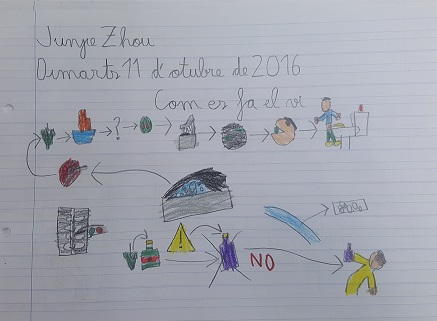 Junjie Zhou
Dimarts 11 d'otubre de 2016
Com es fa el vi
?
NO